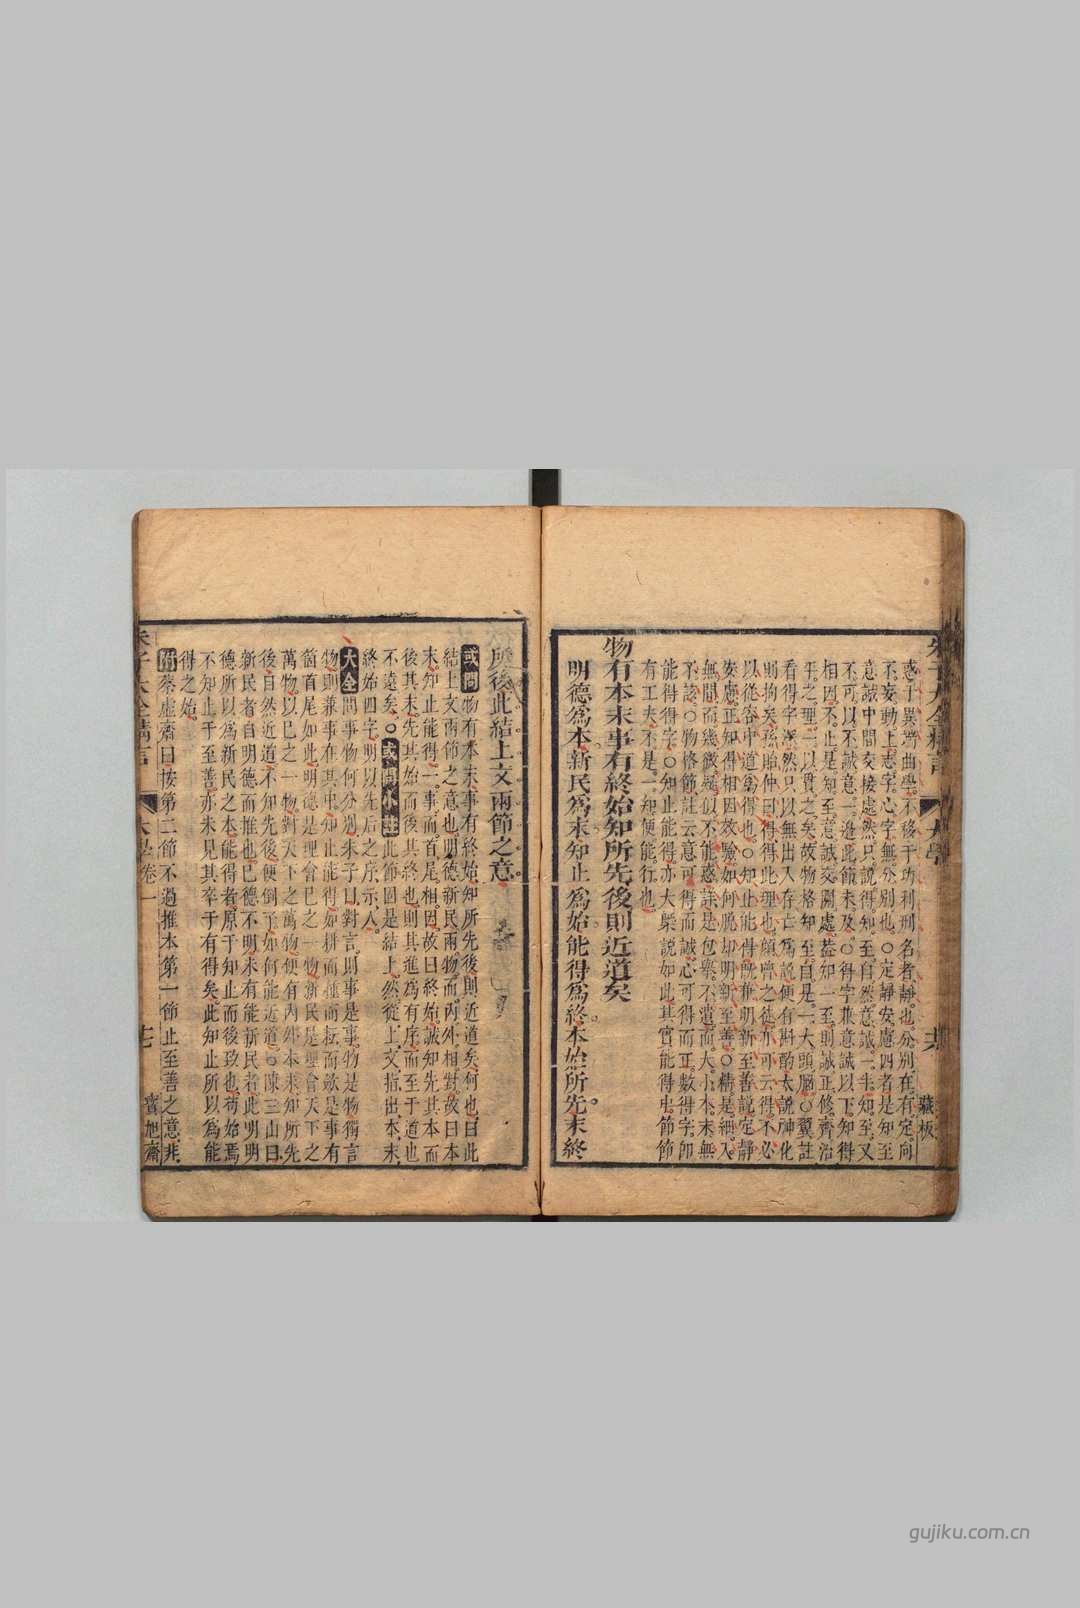 惑于異端曲學。不移于功利刑名者靜也。分別在有定向
不妄動上志字。心字無分別也。○定靜安慮四者是知至
意誠中間交接處然只說得知至。自然意誠。一半知至。又
不可以不誠意一邊此節未及。○得字兼意誠以下知得
相因。不止是知至意誠交關處。蓋知一至。則誠正修齊治
平之理。一以貫之矣。故物格知至。自是一大頭腦。○翼註
看得字渾然只以無出入存亡為說便有斟酌太說神化
則拘矣。孫貽仲曰得得此理也。顏齊之徒亦可云得。不必
以從容中道為得也。○知止能得既兼明新至善說定靜
安慮。正知得相因效驗如何脫却明新至善。○精是細入
無間而幾微疑似不能惑。詳是包羅不遺而大小本末無
不該。○物格節註云意可得而誠。心可得而正。數得字。即
能得得字。○知止能得亦大槩說如此。其實能得中節節
有工夫。不是一知便能行也。
物有本末事有終始知所先後則近道矣
明德為本新民為末知止為始能得為終本始所先末終
所後此結上文兩節之意
或問物有本末事有終始知所先後則近道矣。何也。曰此
結上文兩節之意也。明德新民兩物而內外相對。故曰本
末。知止能得。一事而首尾相因。故曰終始。誠知先其本而
後其末。先其始而後其終也。則其進為有序。而至于道也
不遠矣。○或問小註此節固是結上。然從上文指出本末
終始四字。明以先后之序示人。
大全問事物何分別。朱子曰。對言則事是事物是物獨言
物。則兼事在其中。知止能得如耕而種而耘而斂是事有
箇首尾如此。明德是理會己之一物新民是理會天下之
萬物。以己之一物對天下之萬物便有內外本末。知所先
後。自然近道。不知先後便倒了如何能近道。○陳三山曰。
新民者自明德而推也。己德不明未有能新民者。此明明
德所以為新民之本。能得者原于知止而後致也。苟始焉
不知止于至善。亦未見其卒于有得矣。此知止所以為能
得之始。
附蔡虛齋曰按第二節不過推本第一節止至善之意。非
大學卷一
藏板
寶旭齋
gujiku.com.cn